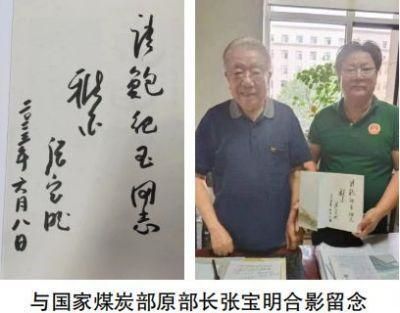 请鲍纪玉同志
雅正
张宝明
二〇二三年六月八日
与国家煤炭部原部长张宝明合影留念